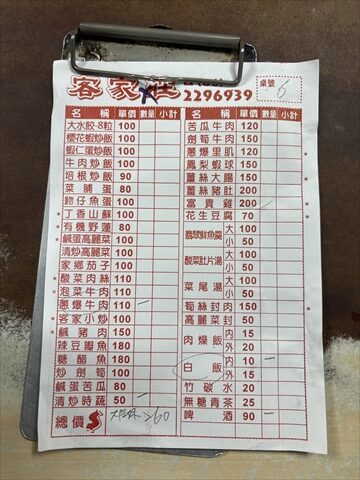 客家莊 2296939 桌號 6
名稱 單價 數量 小計
大水餃-8粒 100
櫻花蝦炒飯 100
蝦仁蛋炒飯 100
牛肉炒飯 100
培根炒飯 90
菜脯蛋 80
魩仔魚蛋 100
丁香山蘇 100
有機野蓮 80
鹹蛋高麗菜 100
清炒高麗菜 100
家鄉茄子 100
酸菜肉絲 110
泡菜牛肉 110
蔥爆牛肉 110 一
客家小炒 100
鹹豬肉 150
辣豆瓣魚 180
糖醋魚 180
炒劍筍 100
鹹蛋苦瓜 80
清炒時蔬 50 一
總價 260
名稱 單價 數量 小計
苦瓜牛肉 120
劍筍牛肉 150
蔥爆里肌 120
鳳梨蝦球 150
薑絲大腸 150
薑絲豬肚 200
富貴雞 200
花生豆腐 70
翡翠鮮魚羹 大 100
小 50
酸菜肚片湯 大 100
小 50
菜尾湯 大 100
小 50
筍絲封肉 50
高麗菜封 50
肉燥飯 內 15
外 20
白飯 內 10 一
外 15
竹碳水 20
無糖青茶 25
啤酒 90 一